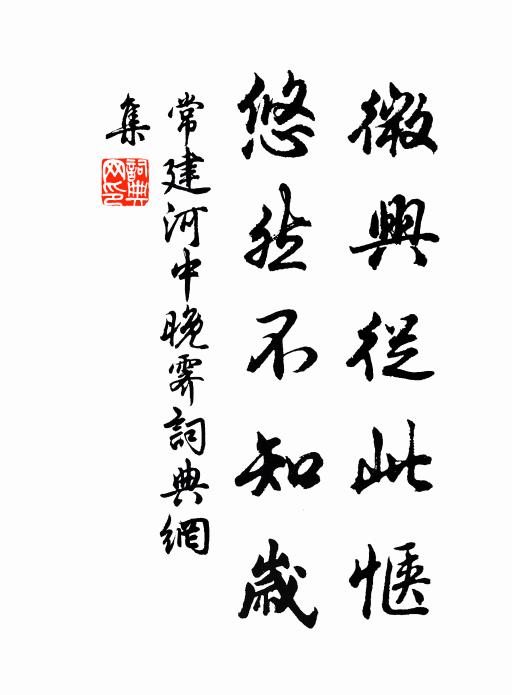 微興從此愜
悠然不知歲
常建河中晚霽詞典網
集
詞典
网印